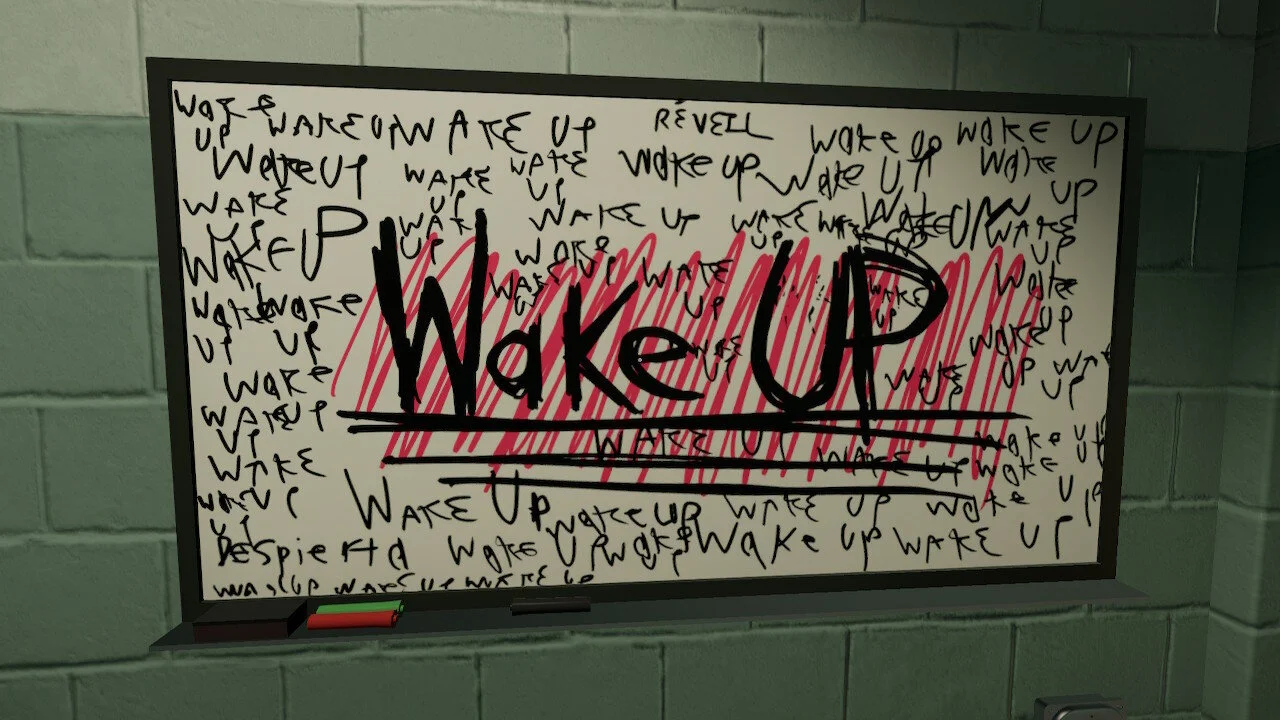 Wake WAKE UP WAKE UP RÉVEIL Wake up WAKE UP
UP
Wake UP WAKE UP WAKE UP Wake up Wake UP Wake UP
WAKE UP WAKE UP WAKE UP WAKE UP Wake UP WAKE UP
WAKE UP Wake UP WAKE UP Wake UP
Wake UP Wake UP
Wake UP
WAKE UP Wake UP
Wake UP WAKE UP
WAKE UP
WAKE UP WAKE UP Wake up
WAKE UP WAKE UP Wake UP
WAKE UP Wake UP wake up WAKE UP Wake UP
Despierta Wake UP Wake UP Wake UP WAKE UP
WAKE UP WAKE UP WAKE UP